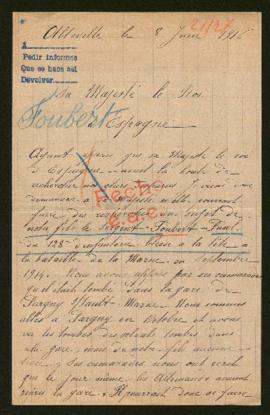 Abbeville le 8 Juin 1915
21/27
A
Pedir informes
Que se hace así
Devolver
Sa Majesté le Roi
d'Espagne
Foubert
Ayant appris que sa Majesté le roi
d'Espagne avait la bonté de
rechercher nos chers
demander à
faire des recherches au sujet de
mon fils le Sergent Foubert Paul
du 128 d'infanterie blessé à la tête à
la bataille de la Marne en Septembre
1914. Nous avons appris par ses camarades
qu'il était tombé dans la gare de
Pargny s/Sault - Marne. Nous sommes
allés à Pargny en Octobre et avons
vu les tombes des soldats tombés dans
cette gare, mais de notre fils aucune
trace. Ses camarades nous ont écrit
que le jour même, les Allemands avaient
la gare et pourrait donc se faire
Fecho